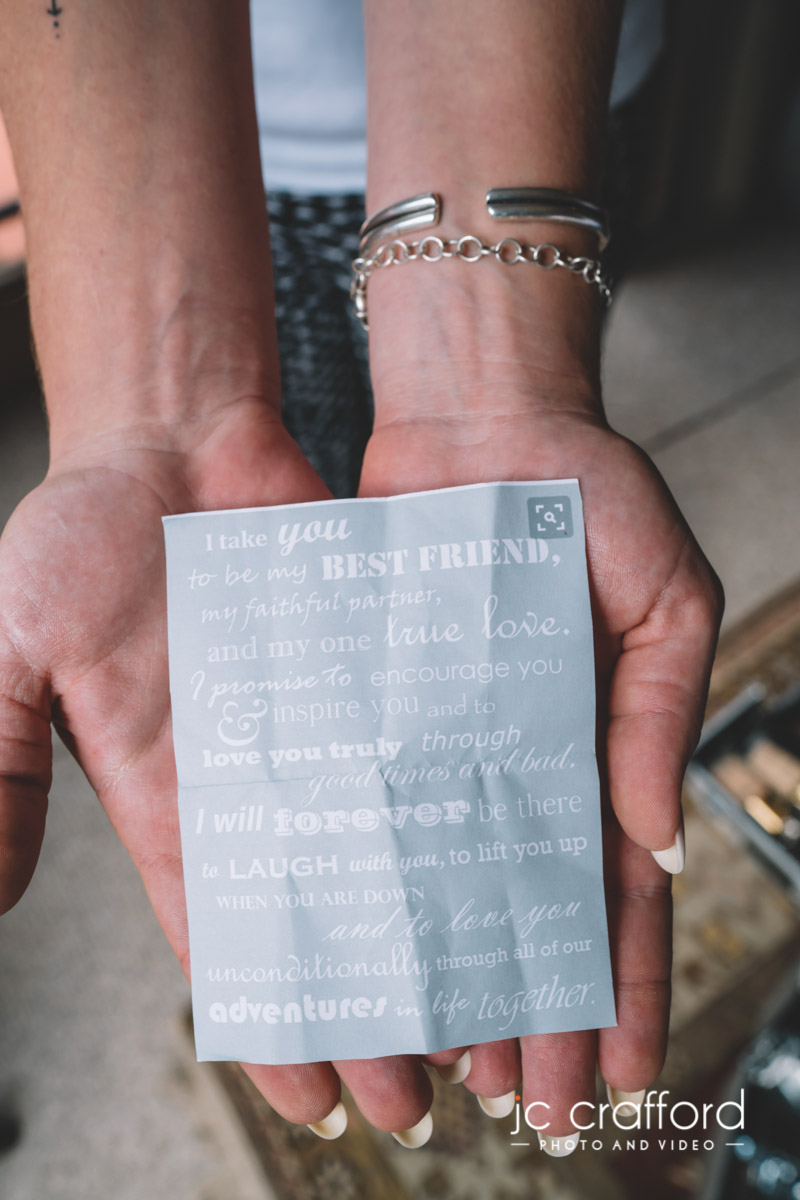 I take you
to be my BEST FRIEND,
my faithful partner,
and my one true love.
I promise to encourage you
& inspire you and to
love you truly through
good times and bad.
I will forever be there
to LAUGH with you, to lift you up
WHEN YOU ARE DOWN
and to love you
unconditionally through all of our
adventures in life together.
jc crafford
PHOTO AND VIDEO